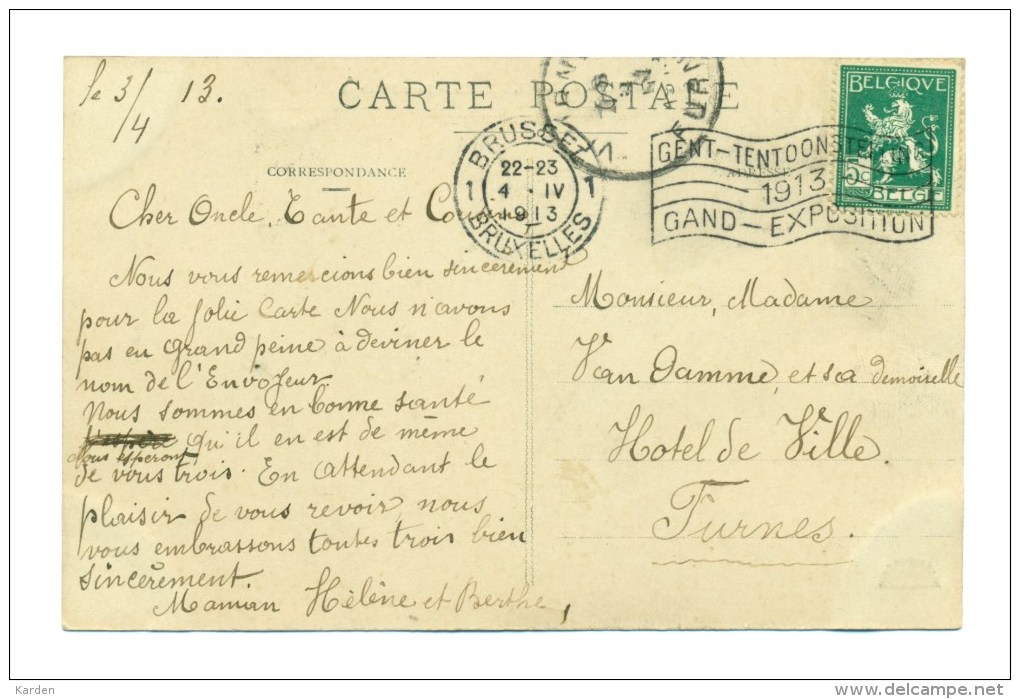 le 3/4 13.
CARTE POSTALE
BRUSSEL
22-23
1 4 . IV 1
1913
BRUXELLES
FURN
GENT-TENTOONSTELLING
1913
GAND-EXPOSITION
BELGIQUE
BELGIË
CORRESPONDANCE
ADRESSE
Cher Oncle, Tante et
Nous vous remercions bien sincerement
pour la Jolie Carte Nous n'avons
pas eu grand peine à deviner le
nom de l'Envoyeur.
Nous sommes en bonne santé
Nous esperont qu'il en est de même
de vous trois. En attendant le
plaisir de vous revoir, nous
vous embrassons toutes trois bien
sincèrement.
Maman Hélène et Berthe,
Monsieur, Madame
Van Damme, et sa demoiselle
Hotel de Ville.
Furnes.
Karden
www.delcampe.net